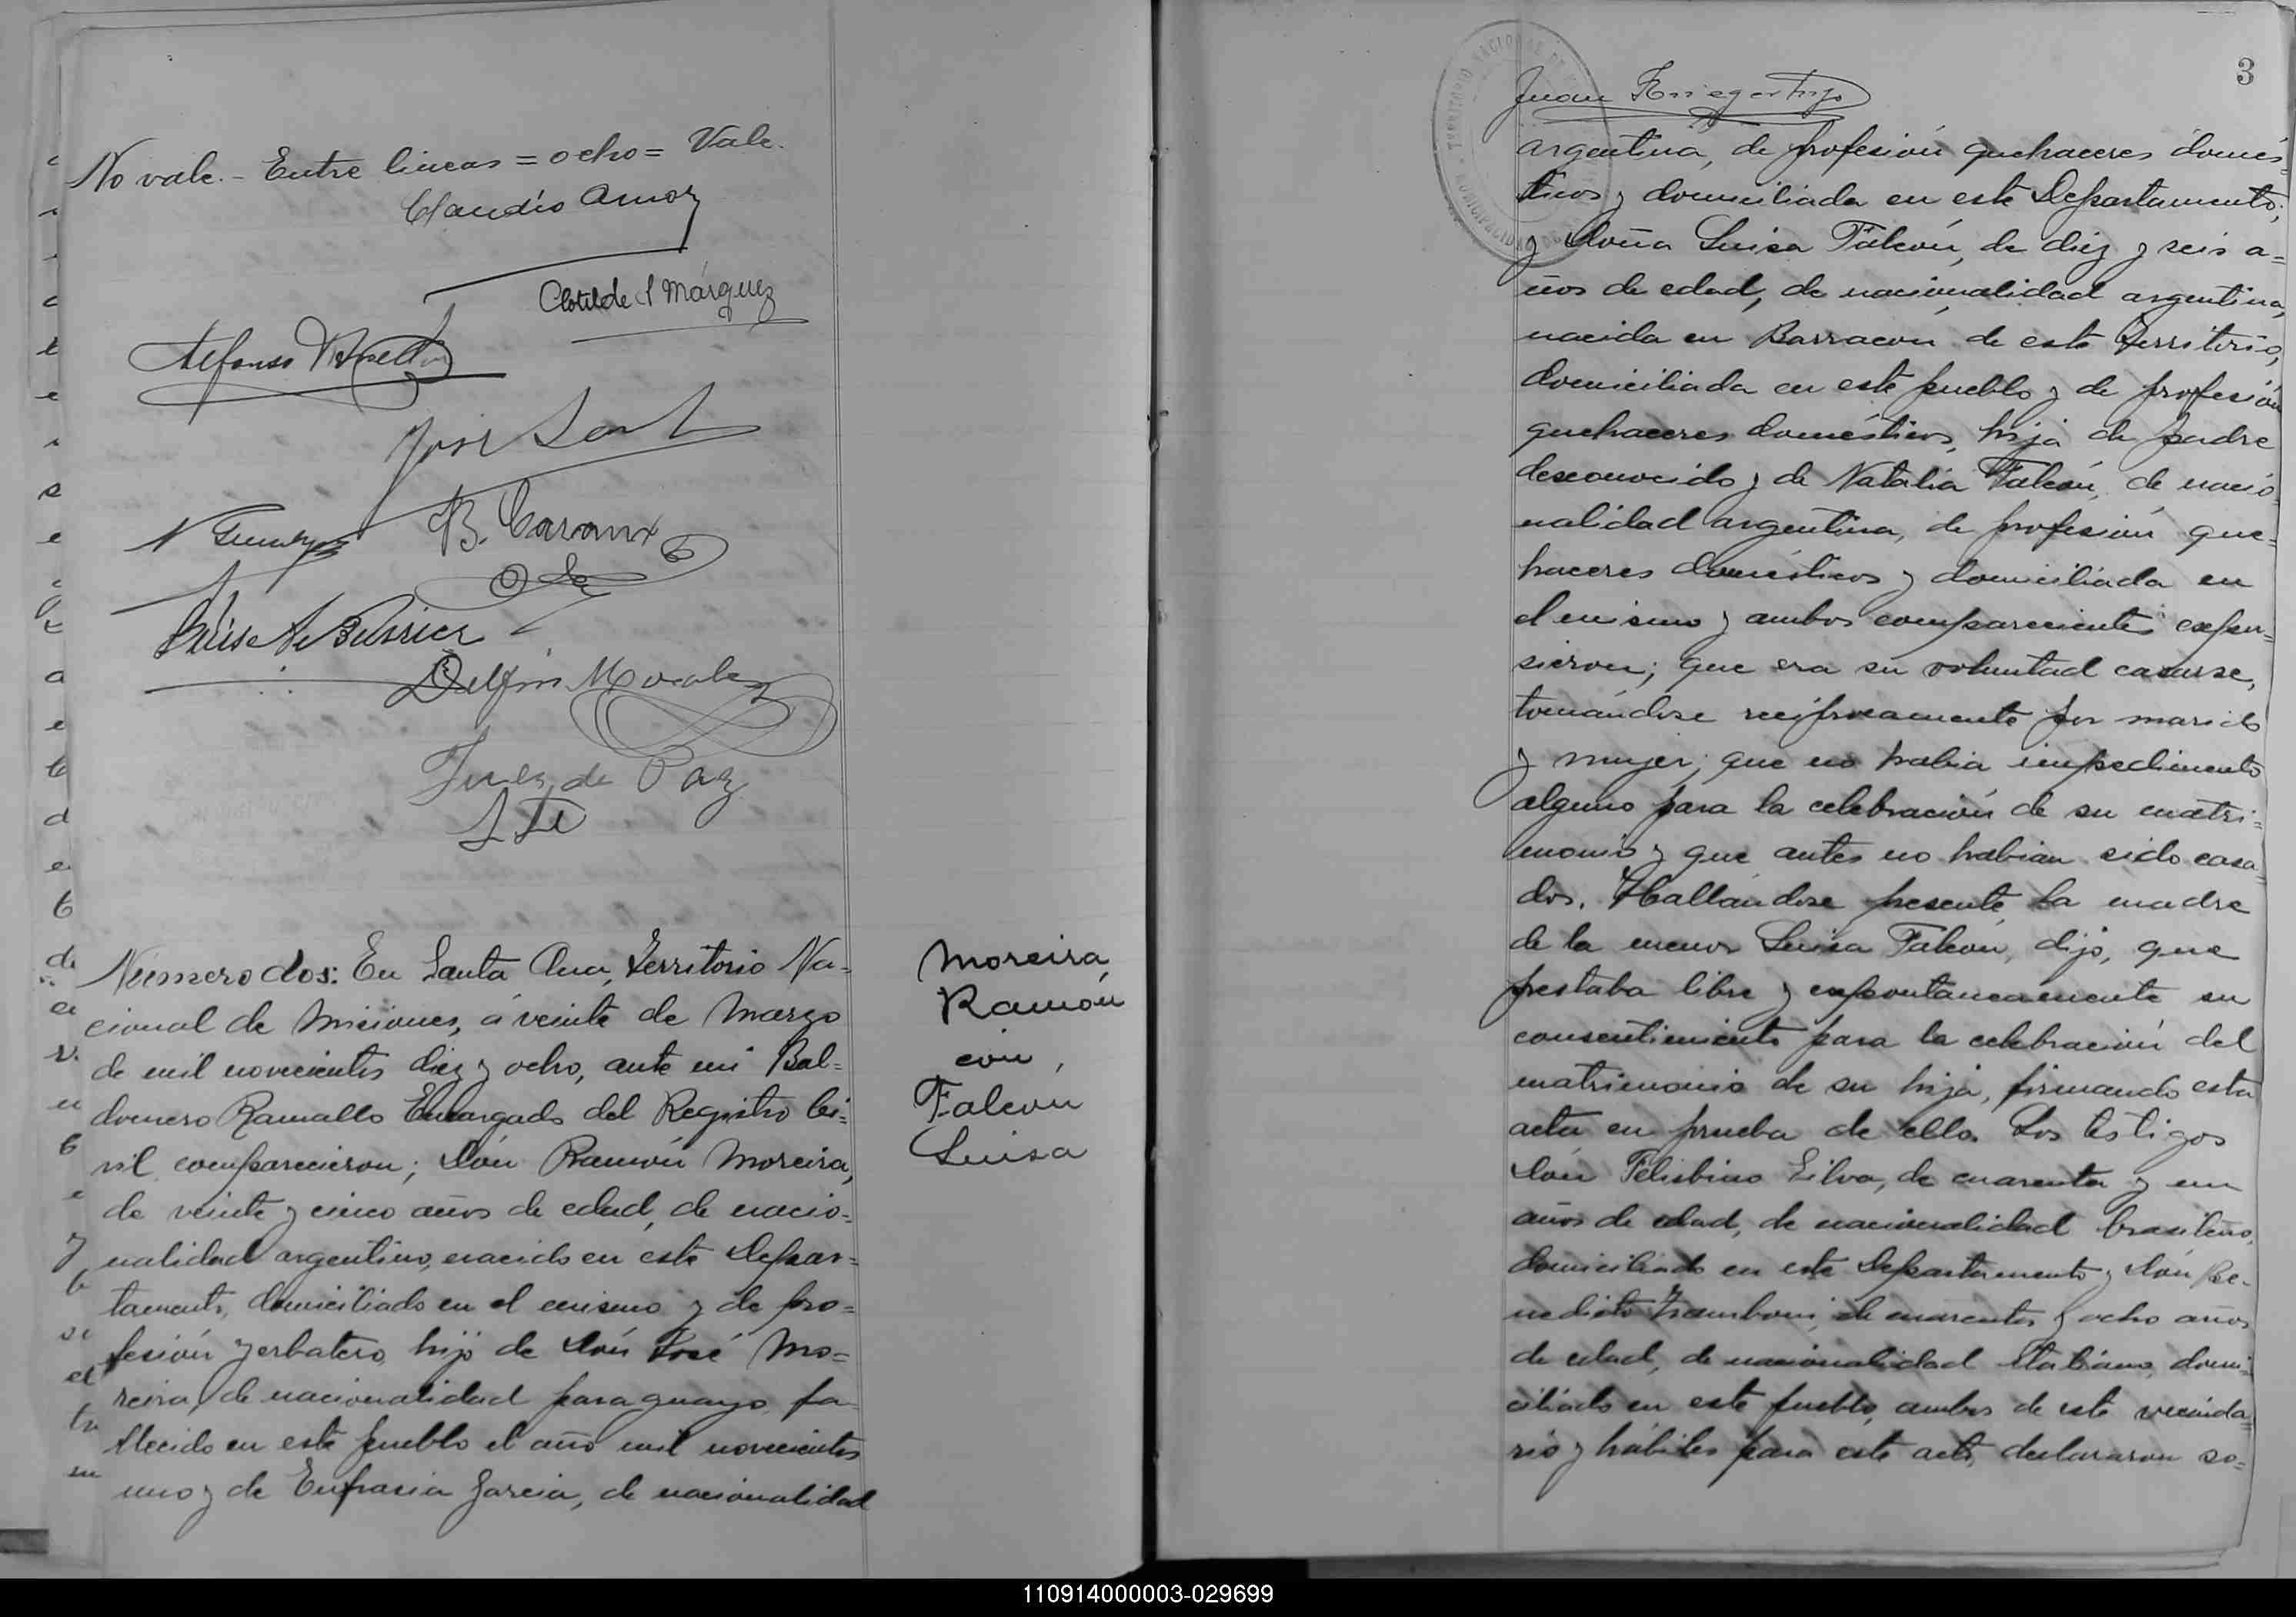 No vale.- Entre lineas = ocho = Vale.
Claudio Arnoz
Clotilde S Márquez
Alfonso
José
N
B.
Luisa
Delfin Morales
Juez de Paz
Número dos: En Santa Ana, Territorio Na-
cional de Misiones, á veinte de Marzo
de mil novecientos diez y ocho, ante mi Bal=
domero Ramallo Encargado del Registro Ci=
vil comparecieron; Dón Ramón Moreira,
de veinte y cinco años de edad, de nacio=
nalidad argentino, nacido en este Depar=
tamento, domiciliado en el mismo y de pro=
fesión yerbatero, hijo de Dón José Mo=
reira, de nacionalidad paraguayo, fa-
llecido en este pueblo el año mil novecientos
uno y de Eufrasia Garcia, de nacionalidad
Moreira
Ramón
con
Falcón
Luisa
3
Juan
argentina, de profesión quehaceres domés=
ticos y domiciliada en este Departamento;
y Doña Luisa Falcón, de diez y seis a=
ños de edad, de nacionalidad argentina,
nacida en Barracón de este Territorio,
domiciliada en este pueblo y de profesión
quehaceres domésticos, hija de padre
desconocido y de Natalia Falcón, de nacio-
nalidad argentina, de profesión que=
haceres domésticos y domiciliada en
el mismo y ambos comparecientes expu=
sieron; que era su voluntad casarse,
tomándose reciprocamente por marido
y mujer; que no habia impedimento
alguno para la celebración de su matri=
monio y que antes no habian sido casa-
dos. Hallándose presente la madre
de la menor Luisa Falcón, dijo, que
prestaba libre y expontaneamente su
consentimiento para la celebración del
matrimonio de su hija, firmando esta
acta en prueba de ello. Los testigos
Dón Felisbino Silva, de cuarenta y un
años de edad, de nacionalidad brasileño,
domiciliado en este Departamento y Dón Be-
nedicto Zamboni, de cuarenta y ocho años
de edad, de nacionalidad italiano, domi-
ciliado en este pueblo, ambos de este vecinda-
rio y hábiles para este acto, declararon so=
110914000003-029699